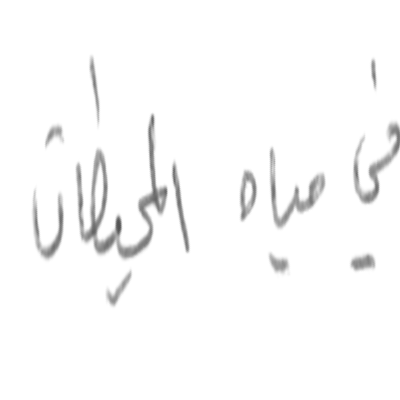 في مياه المحيطات